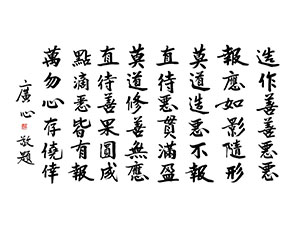 造作善善惡惡
報應如影隨形
莫道造惡不報
直待惡貫滿盈
莫道修善無應
直待善果圓成
點滴悉皆有報
萬勿心存僥倖
廣心
敬題